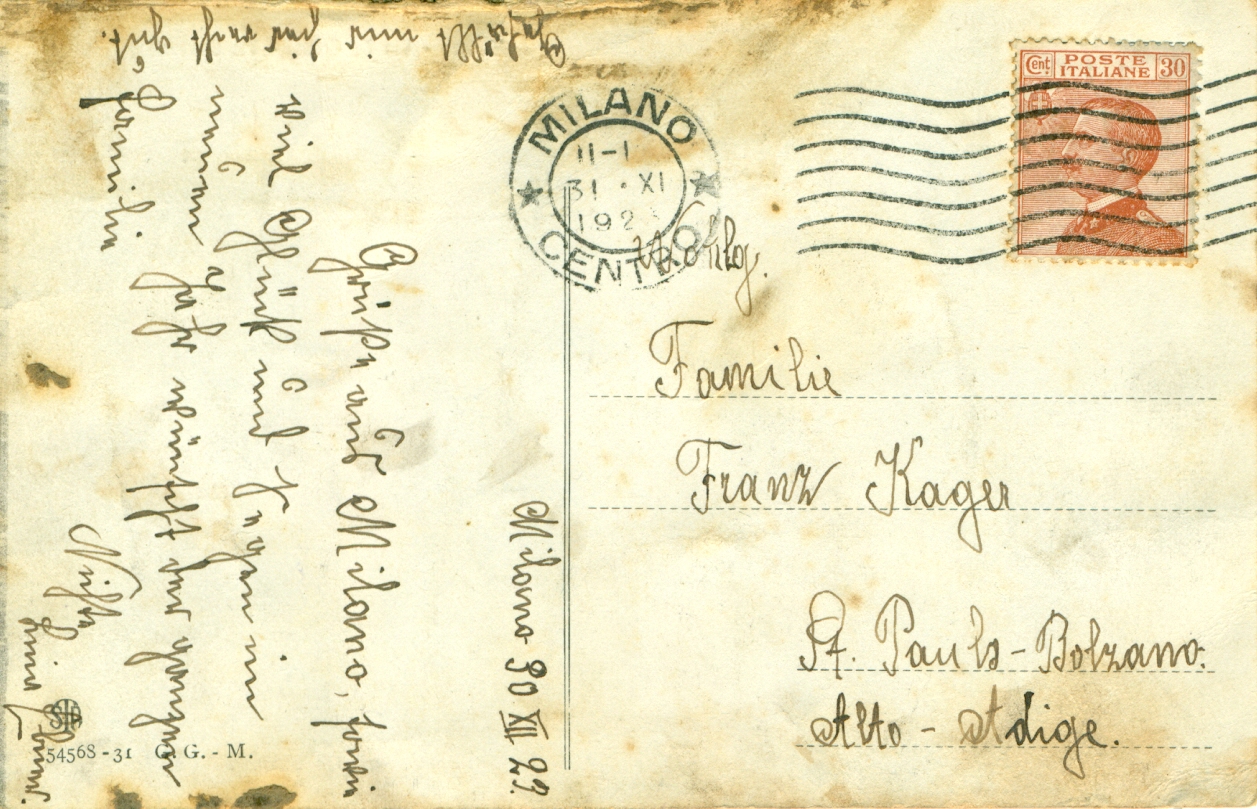 Milano 30 XII 29.
Grüße aus Milano, sowie
viel Glück und Segen im
neuen Jahr wünscht der ganzen
Familie
Nichte
Gefällt mir hier recht gut.
54568-31 G. G. - M.
MILANO
11-1
31 · XI
192
CENTRO
Cent. POSTE ITALIANE 30
Wohlg.
Familie
Franz Kager
St. Pauls - Bolzano.
Alto - Adige.